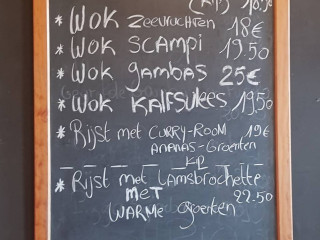 (KIP) 18.50
* Wok Zeevruchten 18€
* Wok SCAMPI 19.50
* Wok gambas 25€
* Wok KALFSVLEES 19,50
* Rijst met CURRY-ROOM 19€
ANANAS-Groenten
KIP
* Rijst met Lamsbrochette
MET 22.50
WARME groenten